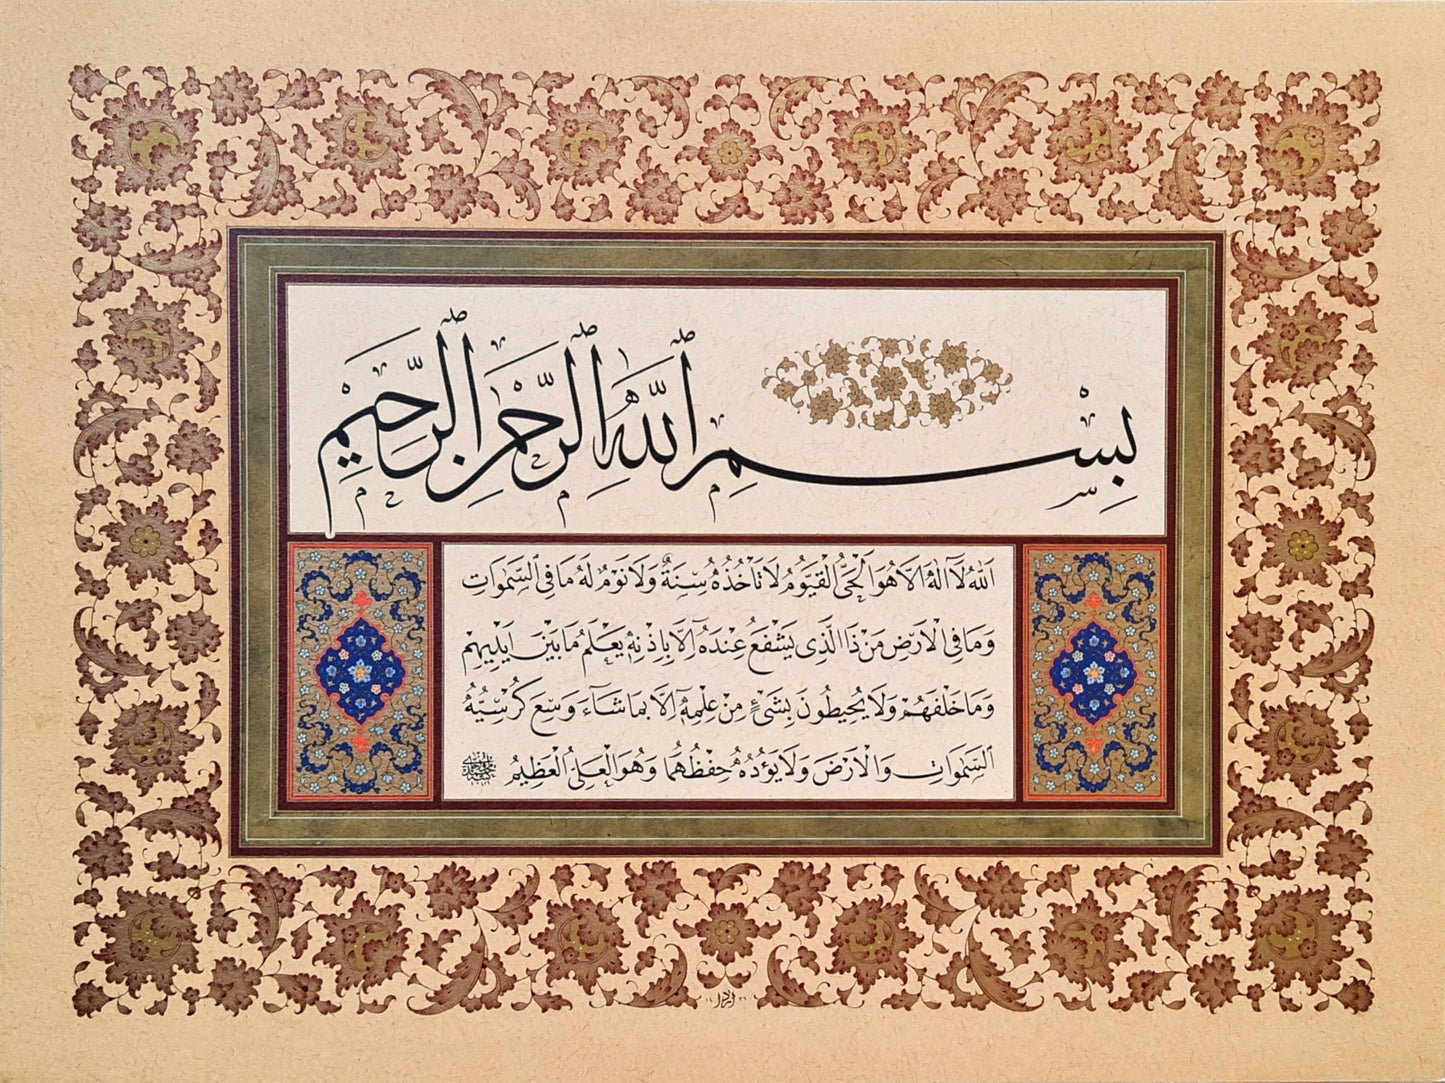 بِسْمِ ٱللَّهِ ٱلرَّحْمٰنِ ٱلرَّحِيمِ
اَللّٰهُ لَآ اِلٰهَ اِلَّا هُوَ الْحَىُّ الْقَيُّومُ لَا تَاْخُذُهُ سِنَةٌ وَلَا نَوْمٌ لَهُ مَا فِى السَّمٰوَاتِ
وَمَا فِى الْاَرْضِ مَنْ ذَا الَّذِى يَشْفَعُ عِنْدَهُٓ اِلَّا بِاِذْنِهٖ يَعْلَمُ مَا بَيْنَ اَيْدِيهِمْ
وَمَا خَلْفَهُمْ وَلَا يُحِيطُونَ بِشَىْءٍ مِنْ عِلْمِهٖٓ اِلَّا بِمَا شَآءَ وَسِعَ كُرْسِيُّهُ
السَّمٰوَاتِ وَالْاَرْضَ وَلَا يَؤُدُهُ حِفْظُهُمَا وَهُوَ الْعَلِىُّ الْعَظِيمُ